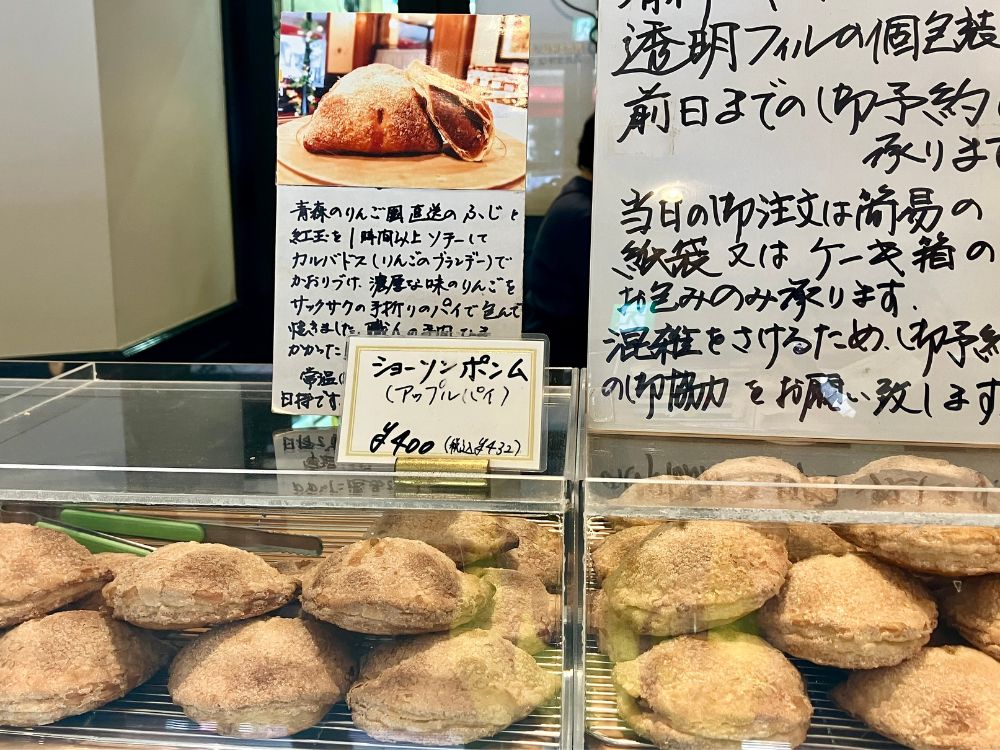 青森のりんご園直送のふじと
紅玉を1時間以上ソテーして
カルバドス(りんごのブランデー)で
かおりづけ、濃厚な味のりんごを
サックサクの手折りのパイで包んで
焼きました。職人の手間ひま
かかった!
常温
日持です
ショーソンポンム
(アップルパイ)
¥400 (税込¥432)
透明フィルの個包装
前日までの御予約
承ります
当日の御注文は簡易の
紙袋又はケーキ箱の
お包みのみ承ります.
混雑をさけるため、御予約
の御協力をお願い致します